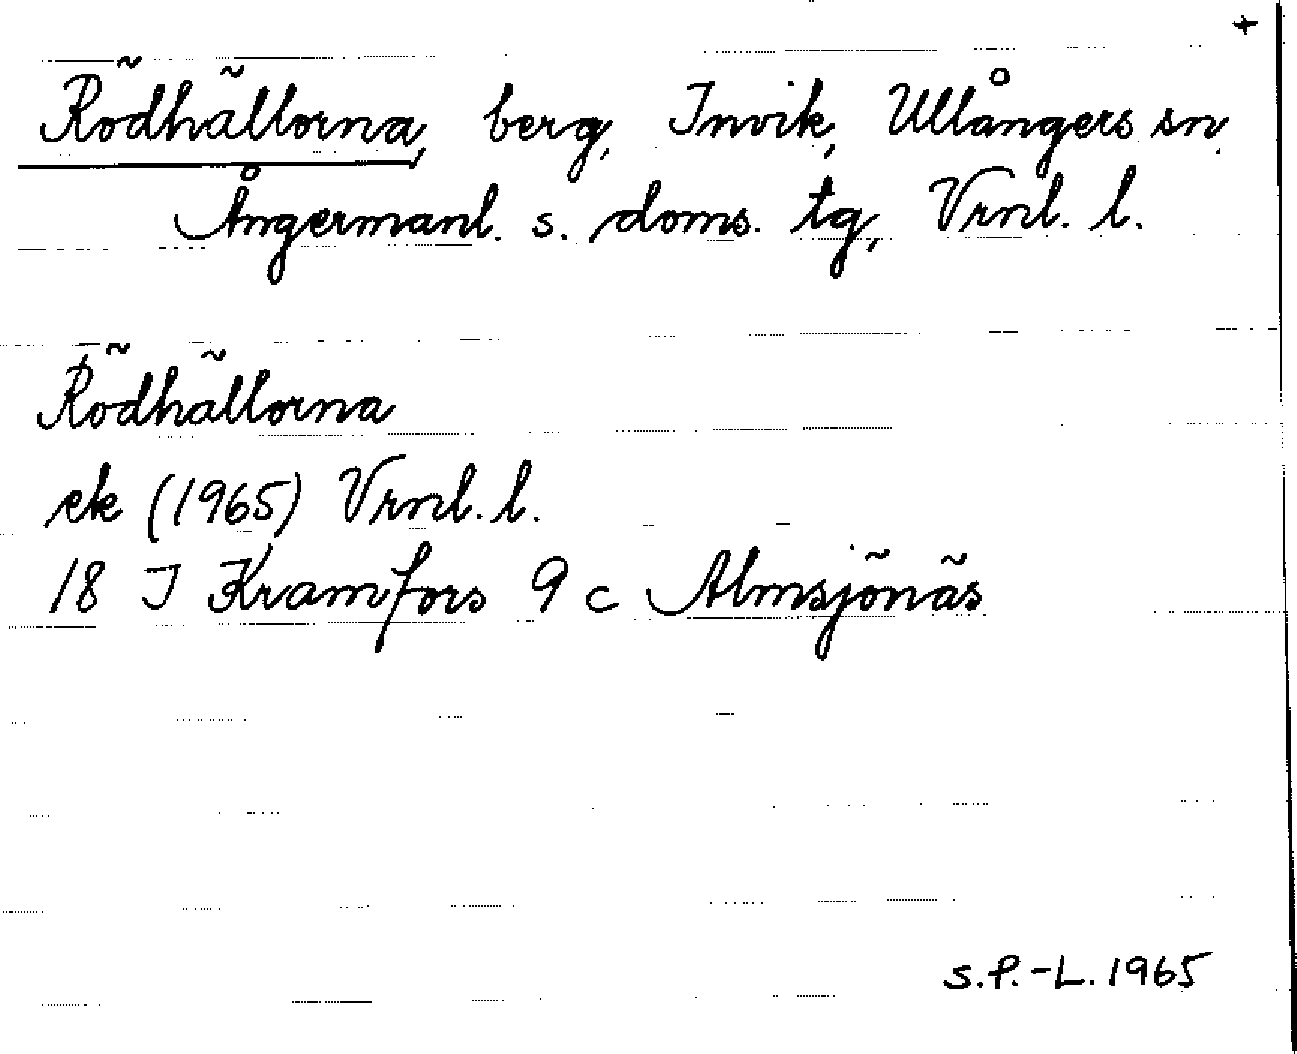 +
Rödhällorna, berg, Invik, Ullångers sn,
Ångermanl. s. doms. tg, Vrnl. l.
Rödhällorna
ek (1965) Vrnl. l.
18 J Kramfors 9 c Almsjönäs
S.P.-L. 1965